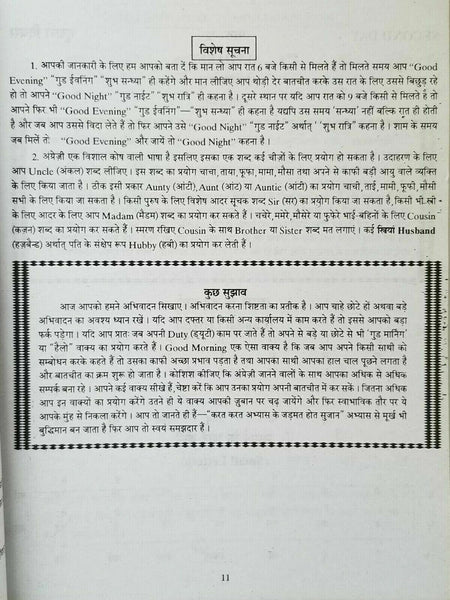 विशेष सूचना
1. आपकी जानकारी के लिए हम आपको बता दें कि मान लो आप रात 6 बजे किसी से मिलते हैं तो मिलते समय आप “Good
Evening” “गुड ईवनिंग” “शुभ सन्ध्या” ही कहेंगे और मान लीजिए आप थोड़ी देर बातचीत करके उस रात के लिए उससे बिछुड़ रहे
हो तो आपने “Good Night” “गुड नाईट” “शुभ रात्रि” ही कहना है। दूसरे स्थान पर यदि आप रात को 9 बजे किसी से मिलते है तो
आपने फिर भी “Good Evening” “गुड ईवनिंग”—“शुभ सन्ध्या” ही कहना है यद्यपि उस समय ‘सन्ध्या’ नहीं बल्कि रात ही होती
है और जब आप उससे विदा लेते हैं तो फिर आपने उसे “Good Night” “गुड नाईट” अर्थात् ‘‘शुभ रात्रि” कहना है। शाम के समय
जब मिलें तो “Good Evening” और जायें तो “Good Night” कहना है।
2. अंग्रेज़ी एक विशाल कोष वाली भाषा है इसलिए इसका एक शब्द कई चीज़ों के लिए प्रयोग हो सकता है। उदाहरण के लिए
आप Uncle (अंकल) शब्द लीजिए। इस शब्द का प्रयोग चाचा, ताया, फूफा, मामा, मौसा तथा अपने से काफी बड़ी आयु वाले व्यक्ति
के लिए किया जाता है। ठीक इसी प्रकार Aunty (आंटी), Aunt (आंट) या Auntie (आंटी) का प्रयोग चाची, ताई, मामी, फूफी, मौसी
सभी के लिए किया जा सकता है। किसी पुरुष के लिए विशेष आदर सूचक शब्द Sir (सर) का प्रयोग किया जा सकता है, किसी भी स्त्री
के लिए आदर के लिए आप Madam (मैडम) शब्द का प्रयोग कर सकते हैं। चचेरे, ममेरे, मौसेरे या फुफेरे भाई-बहिनों के लिए Cousin
(कज़न) शब्द का प्रयोग कर सकते हैं। स्मरण रखिए Cousin के साथ Brother या Sister शब्द मत लगाएं। कई स्त्रियां Husband
(हज़बैन्ड) अर्थात् पति के संक्षेप रूप Hubby (हबी) का प्रयोग कर लेती हैं।
कुछ सुझाव
आज आपको हमने अभिवादन सिखाए। अभिवादन करना शिष्टता का प्रतीक है। आप चाहे छोटे हों अथवा बड़े
अभिवादन का अवश्य ध्यान रखें। यदि आप दफ्तर या किसी अन्य कार्यालय में काम करते हैं तो इससे आपको बड़ा
फर्क पड़ेगा। यदि आप प्रातः जब अपनी Duty (ड्यूटी) काम पर जाते हैं तो अपने से बड़े या छोटे से भी ‘गुड मार्निंग’
या “हैलो” वाक्य का प्रयोग करते हैं। Good Morning एक ऐसा वाक्य है कि जब आप अपने किसी साथी को
सम्बोधन करके कहते हैं तो उसका काफी अच्छा प्रभाव पड़ता है तथा आपका साथी आपका हाल चाल पूछने लगता है
और बातचीत का क्रम शुरू हो जाता है। कोशिश कीजिए कि अंग्रेजी जानने वालों के साथ आपका अधिक से अधिक
सम्पर्क बना रहे। आपने कई वाक्य सीखे हैं, चेष्टा करें कि आप उनका प्रयोग अपनी बातचीत में कर सकें। जितना अधिक
आप इन वाक्यों का प्रयोग करेंगे उतने ही ये वाक्य आपकी ज़ुबान पर चढ़ जायेंगे और फिर स्वाभाविक तौर पर ये
आपके मुंह से निकला करेंगे। आप तो जानते ही हैं—“करत करत अभ्यास के जड़मत होत सुजान” अभ्यास से मूर्ख भी
बुद्धिमान बन जाता है फिर आप तो स्वयं समझदार हैं।
11